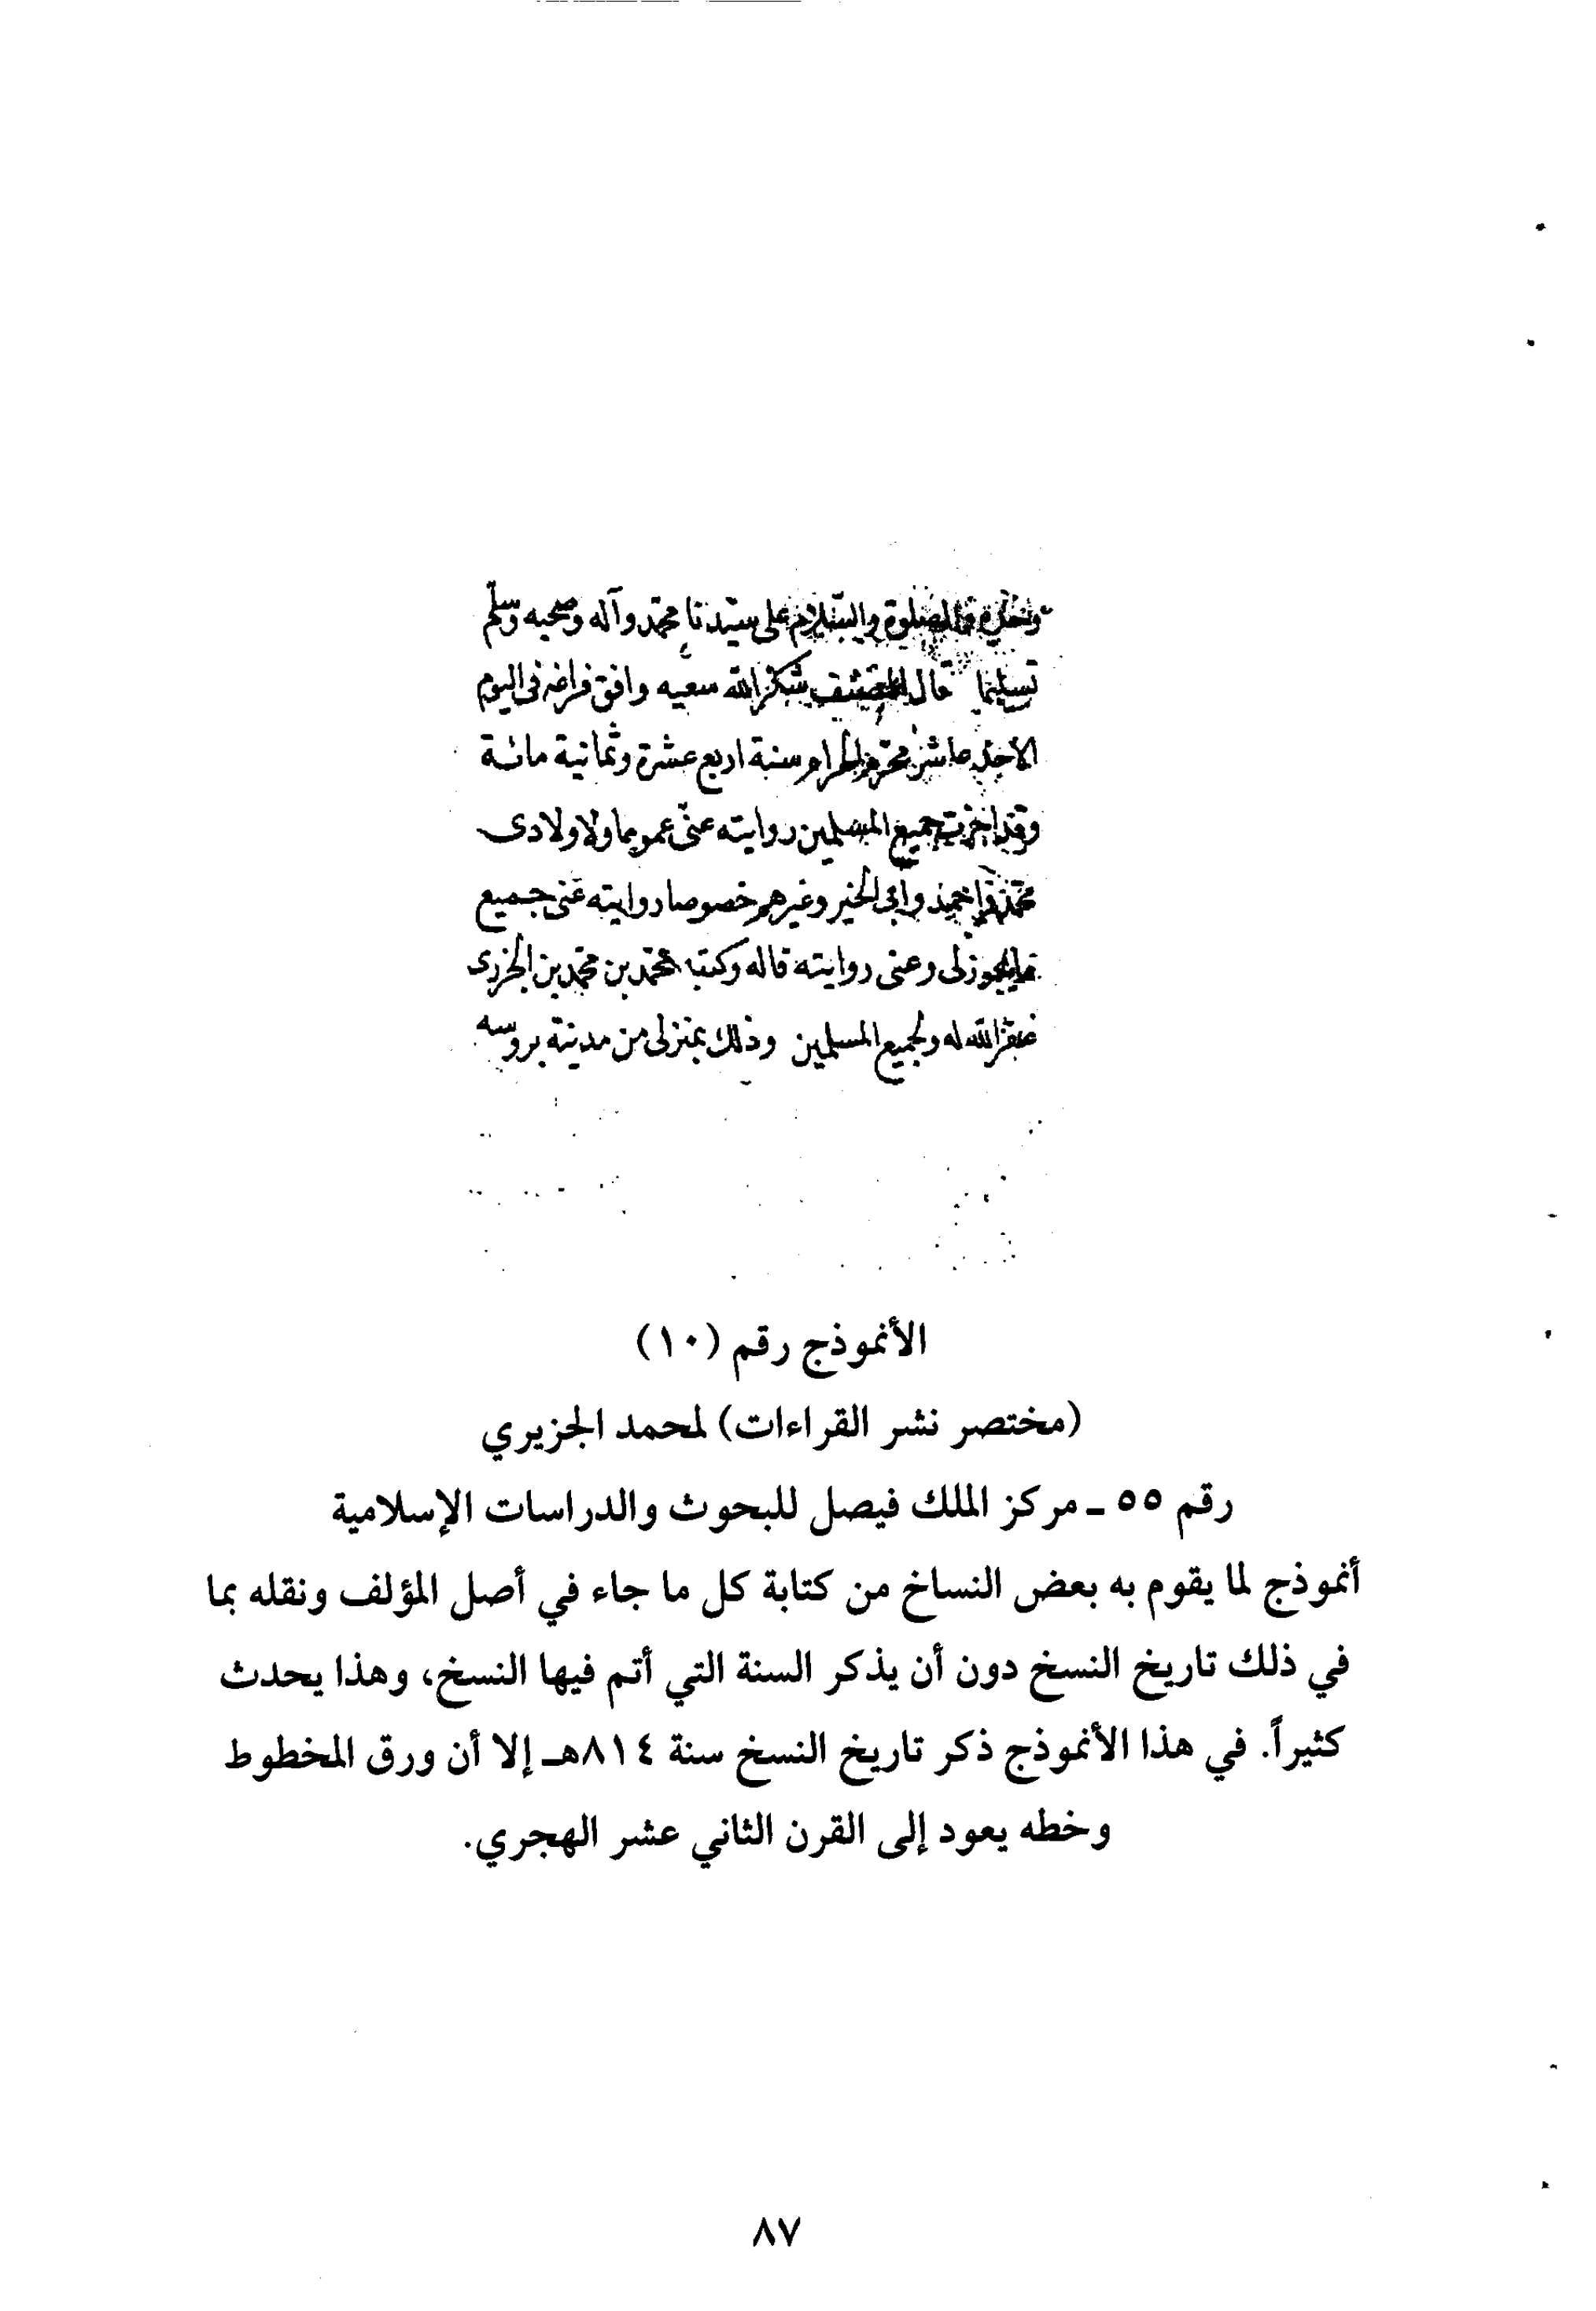 والصلوة والسلام على سيدنا محمد وآله وصحبه وسلم
تسليما قال المصنف شكر الله سعيه وافق فراغه فى اليوم
الاحد عاشر محرم الحرام سنة اربع عشرة وثمانية مائة
وقد اجزت جميع المسلمين روايته عنى عموما ولاولادى
محمد واحمد وابى الخير وغيرهم خصوصا روايته عنى جميع
ما يجوز لى وعنى روايته قاله وكتبه محمد بن محمد بن الجزرى
غفر الله له ولجميع المسلمين وذلك بمنزلى من مدينة بروسه
الأنموذج رقم (١٠)
(مختصر نشر القراءات) لمحمد الجزيري
رقم ٥٥ ـ مركز الملك فيصل للبحوث والدراسات الإسلامية
أنموذج لما يقوم به بعض النساخ من كتابة كل ما جاء في أصل المؤلف ونقله بما
في ذلك تاريخ النسخ دون أن يذكر السنة التي أتم فيها النسخ، وهذا يحدث
كثيراً. في هذا الأنموذج ذكر تاريخ النسخ سنة ٨١٤هـ إلا أن ورق المخطوط
وخطه يعود إلى القرن الثاني عشر الهجري.
٨٧